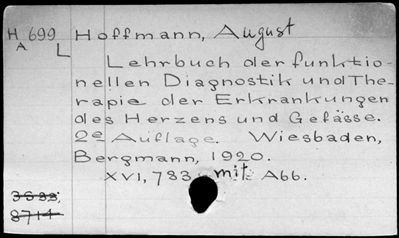 H 699 Hoffmann, August
A
L
Lehrbuch der funktio-
nellen Diagnostik und The-
rapie der Erkrankungen
des Herzens und Gefässe.
2e Auflage. Wiesbaden,
Bergmann, 1920.
XVI, 783 mit Abb.
3688,
8714